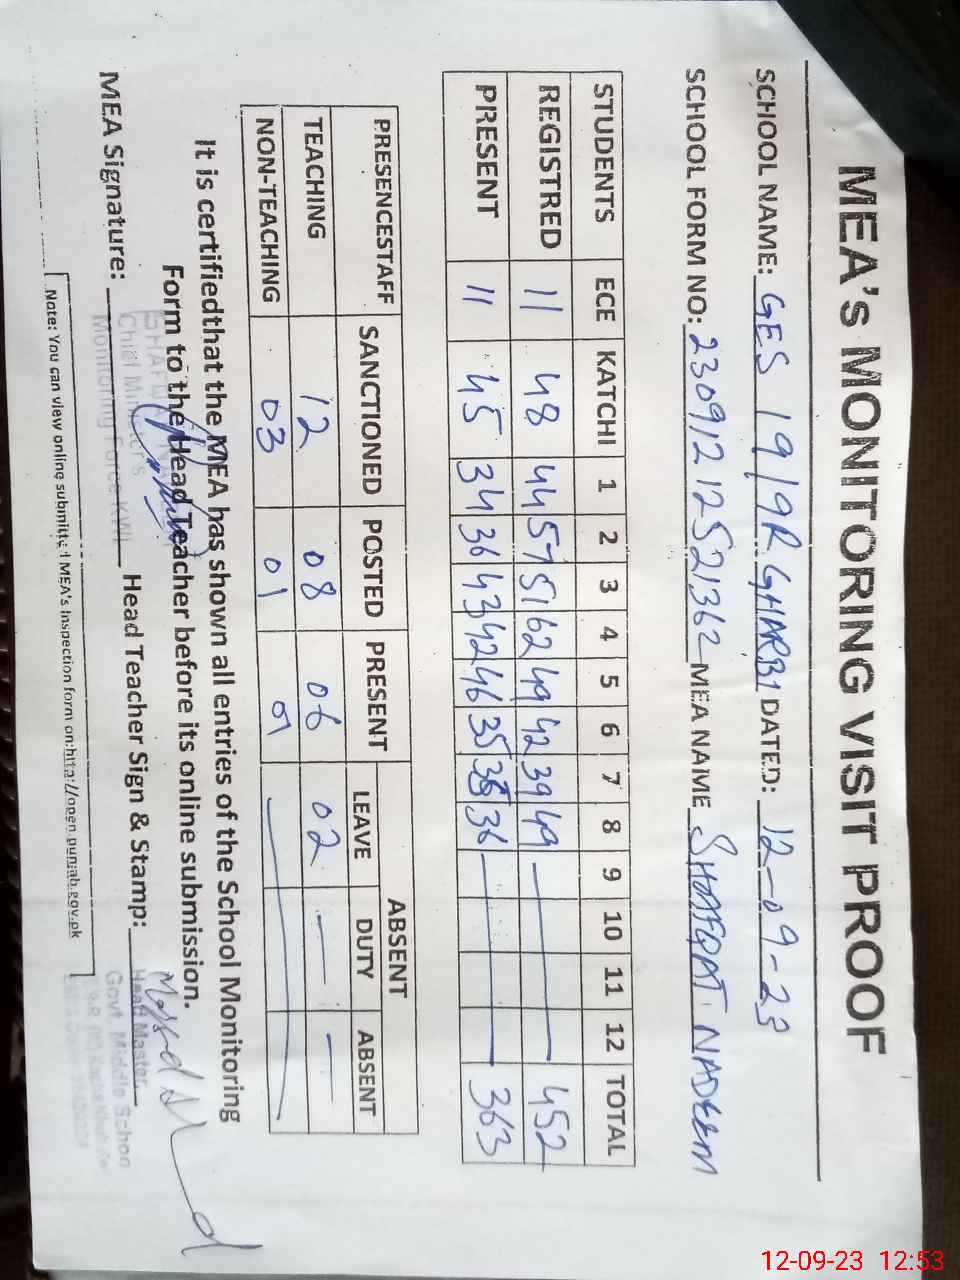 MEA's MONITORING VISIT PROOF
SCHOOL NAME: GES 19/9R GHARBI DATED: 12-09-23
SCHOOL FORM NO: 23091212521362 MEA NAME SHAFQAT NADEEM
STUDENTS ECE KATCHI 1 2 3 4 5 6 7 8 9 10 11 12 TOTAL
REGISTRED 11 48 44 57 51 62 49 42 39 49 — 452
PRESENT 11 45 34 36 43 42 46 35 35 36 — 363
PRESENCESTAFF SANCTIONED POSTED PRESENT ABSENT
LEAVE DUTY ABSENT
TEACHING 12 08 06 02 — —
NON-TEACHING 03 01 01 —
It is certifiedthat the MEA has shown all entries of the School Monitoring
Form to the Head Teacher before its online submission.
MEA Signature: Head Teacher Sign & Stamp:
Chief Minister's
Monitoring Force KWL
Head Master
Govt. Middle Schoo
Note: You can view online submitted MEA's Inspection form on:http://open.punjab.gov.pk
12-09-23 12:53